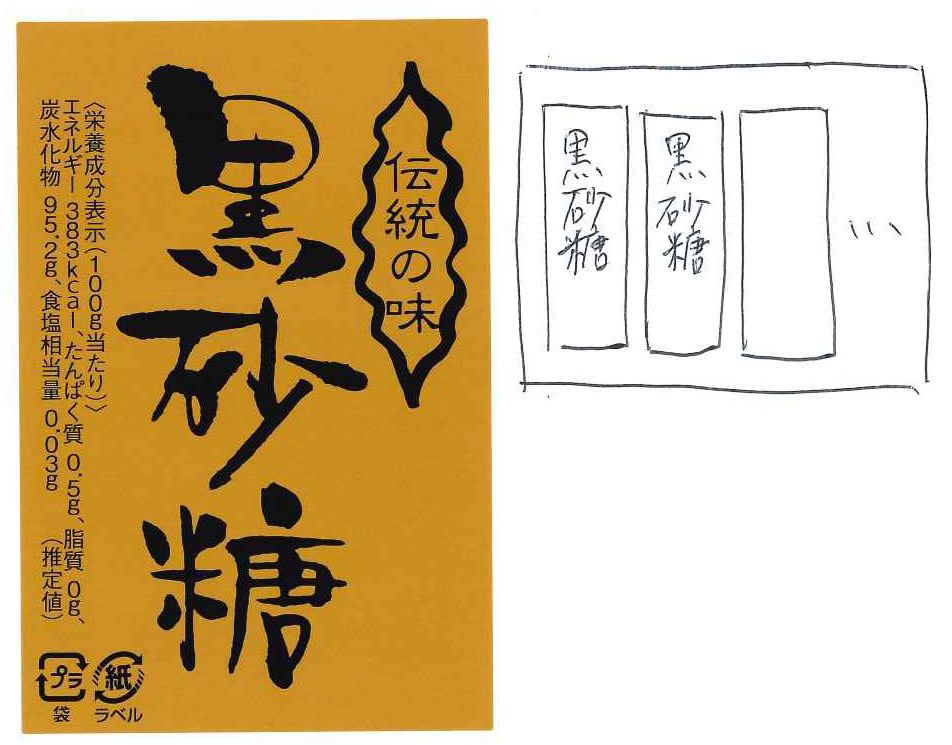 伝統の味
黒砂糖
〈栄養成分表示(100g当たり)〉
エネルギー 383kcal、たんぱく質 0.5g、脂質 0g、
炭水化物 95.2g、食塩相当量 0.03g　(推定値)
プラ
袋
紙
ラベル
黒砂糖
黒砂糖
...